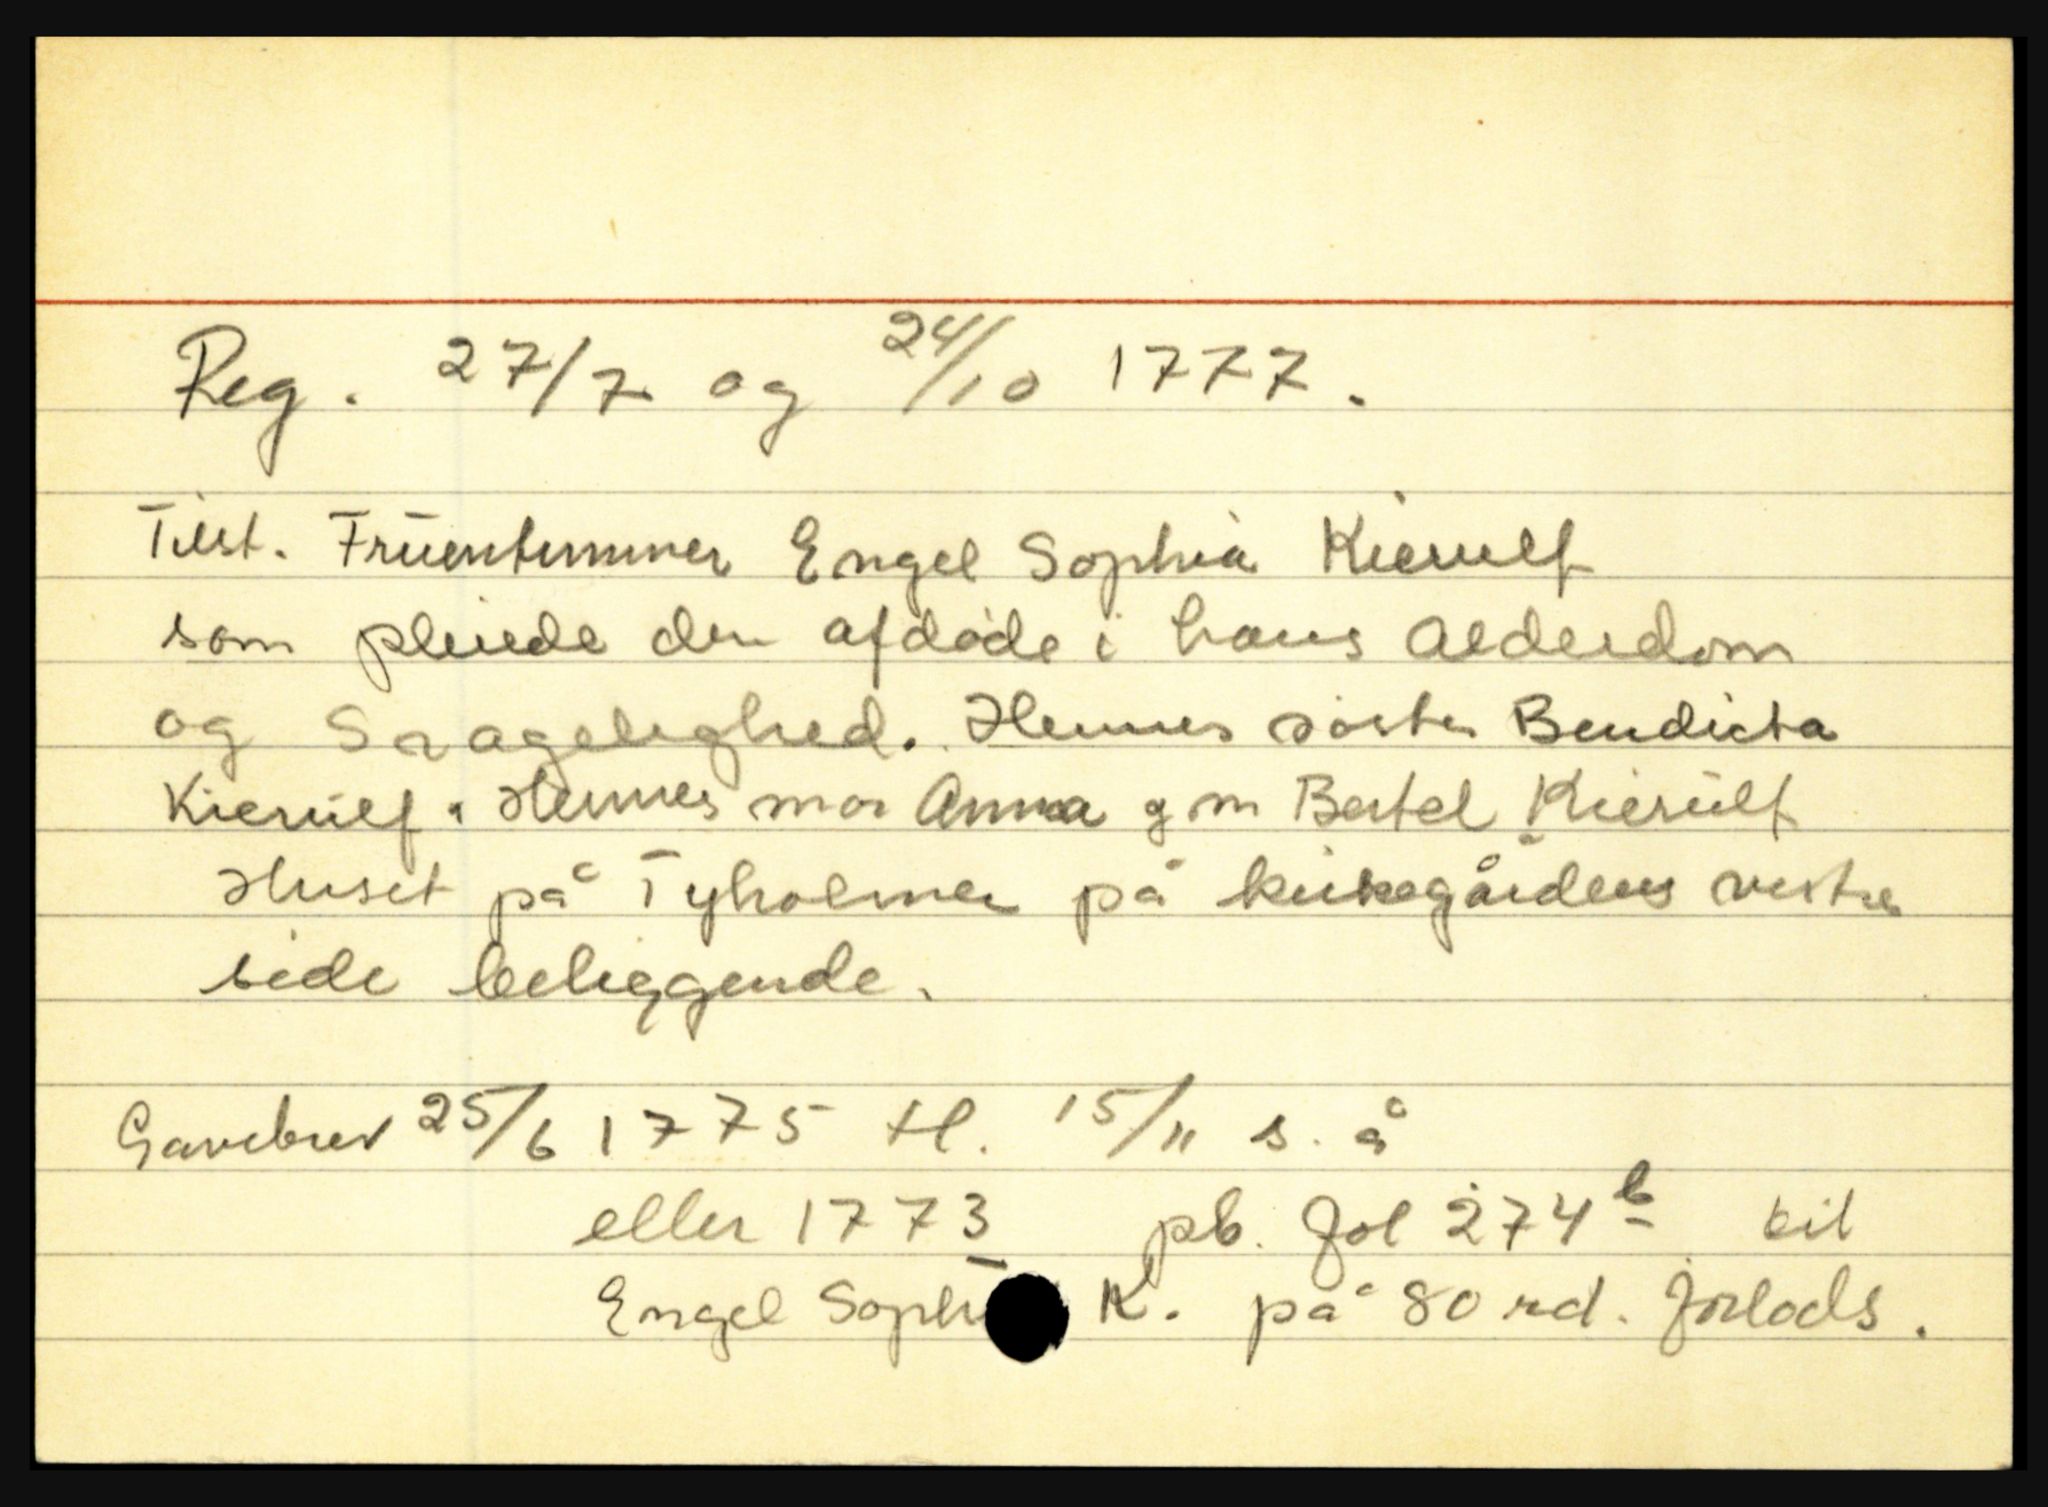 Reg. 27/7 og 24/10 1777.
Tilst. Früentimmer Engel Sophia Kierulf
som pleiede den afdøde i hans Alderdom
og Svagelighed. Hennes søster Bendicta
Kierülf. Hennes mor Anna g m Bertel Kierülf
Huset på Tyholmen på kirkegårdens vestre
side beliggende.
Gavebrev 25/6 1775 tl. 15/11 s. å
eller 1773 pb. fol 274b til
Engel Sophi K. på 80 rd. forlods.